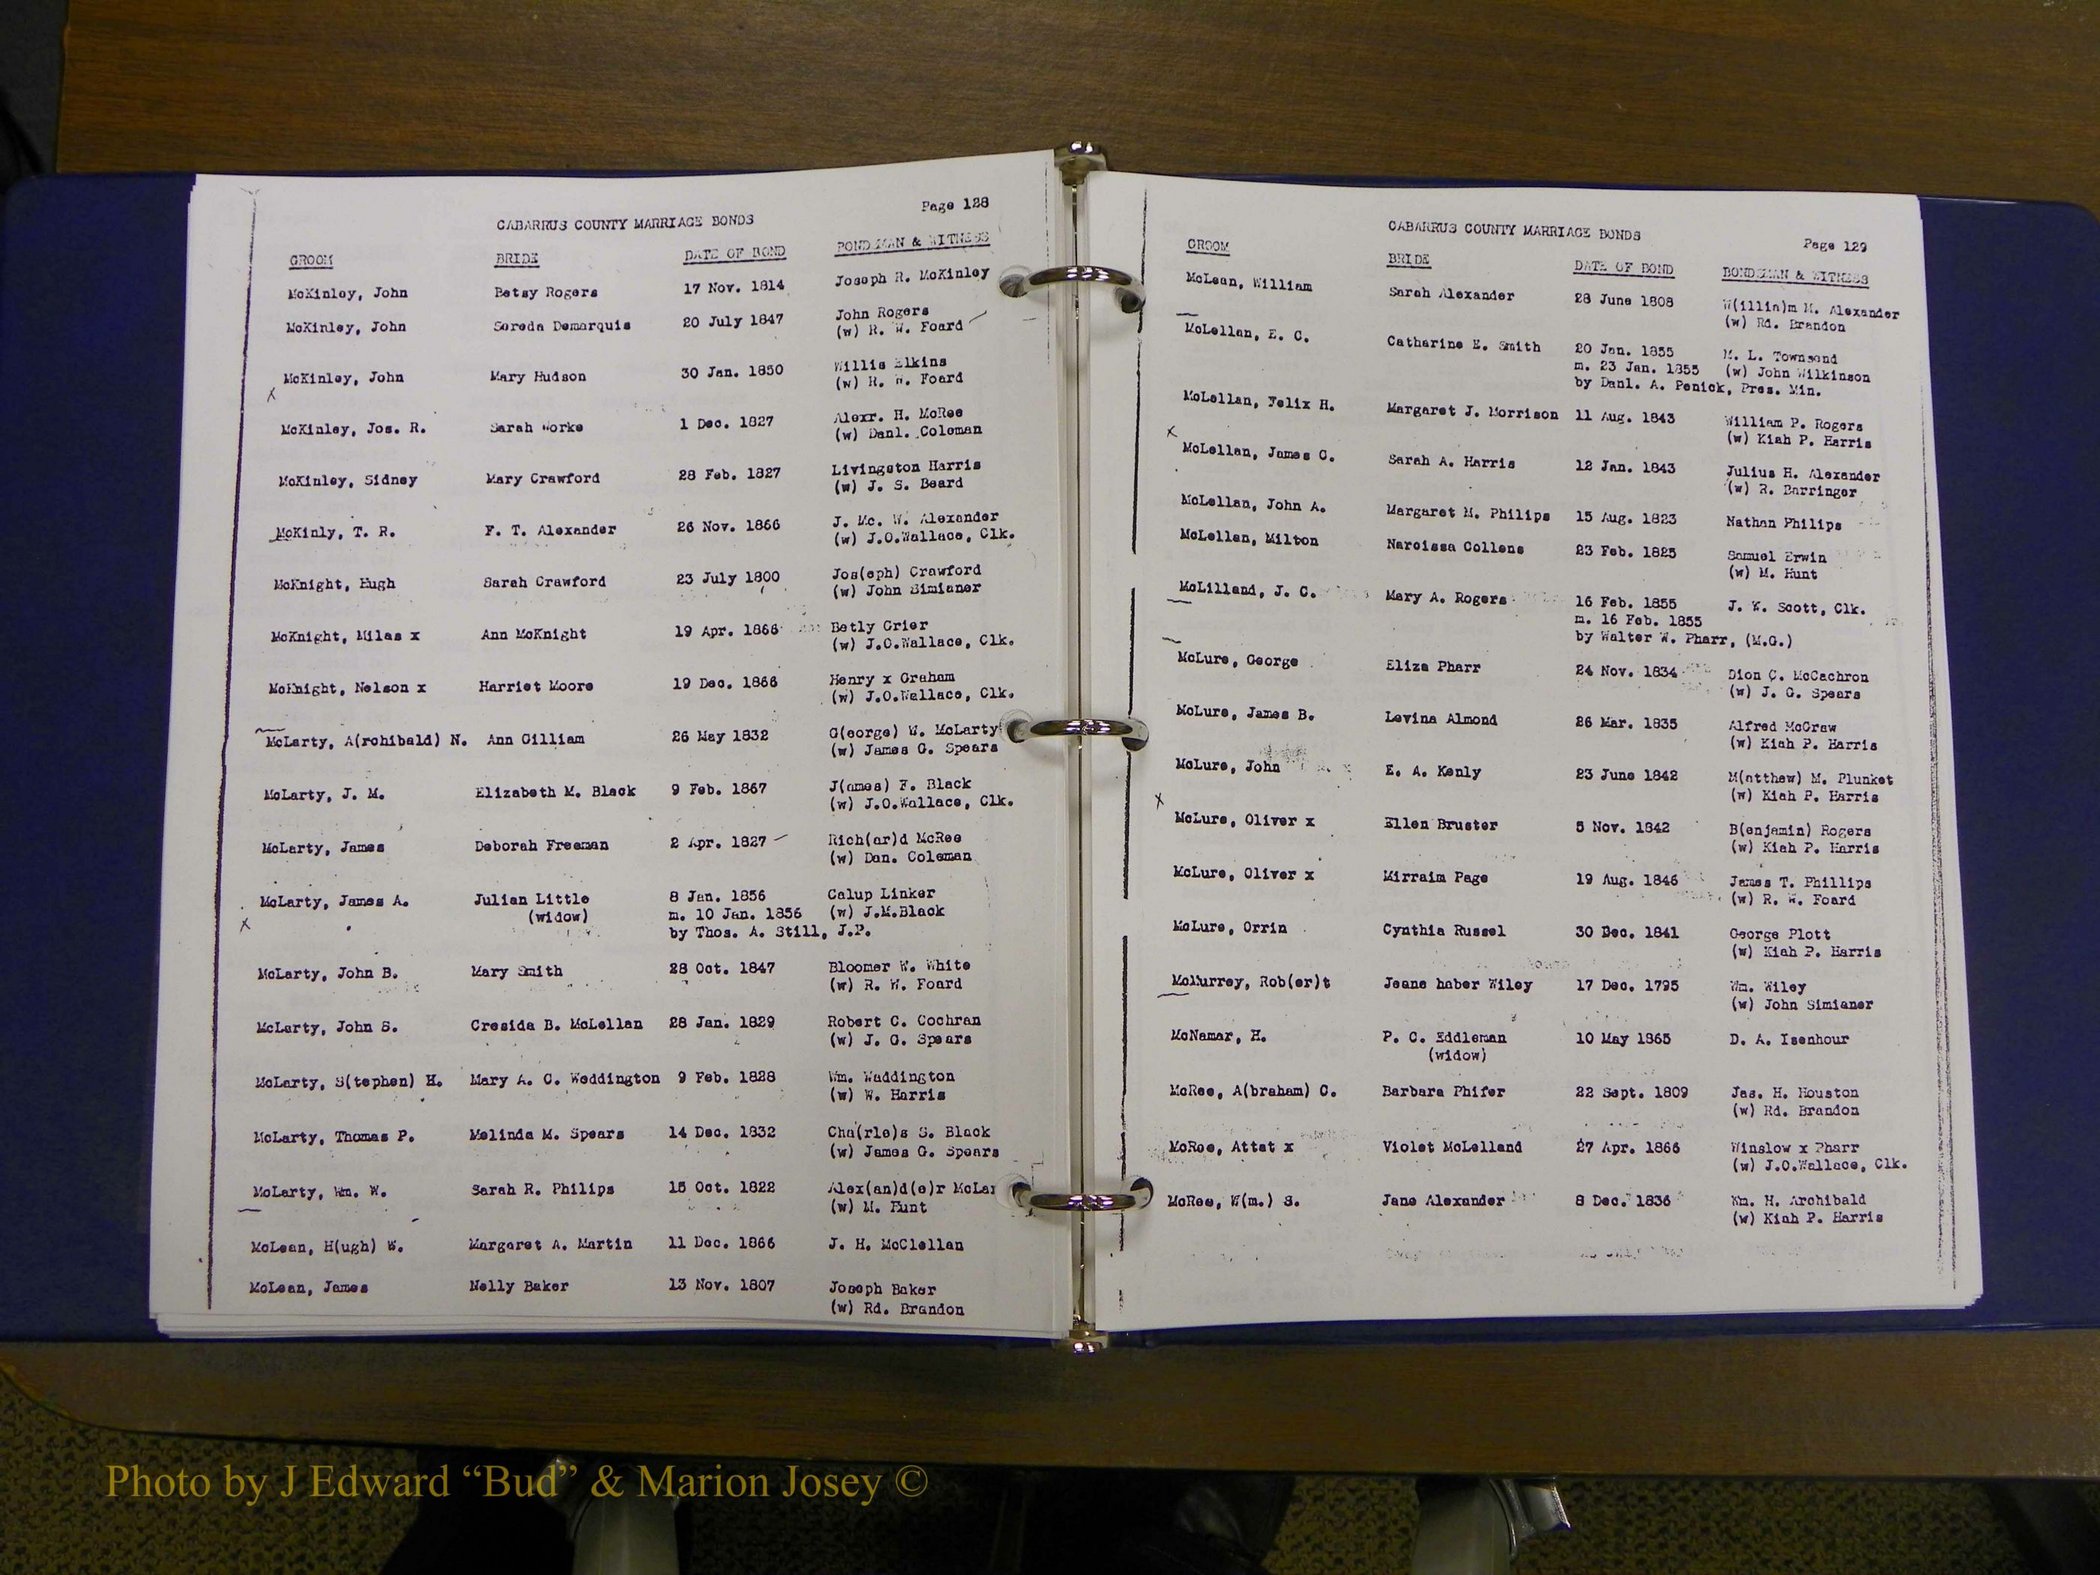 Page 128
CABARRUS COUNTY MARRIAGE BONDS
GROOM BRIDE DATE OF BOND BONDSMAN & WITNESS
McKinley, John Betsy Rogers 17 Nov. 1814 Joseph R. McKinley
McKinley, John Soreda Demarquis 20 July 1847 John Rogers
(w) R. W. Foard
McKinley, John Mary Hudson 30 Jan. 1850 Willis Elkins
(w) R. W. Foard
x
McKinley, Jos. R. Sarah Morke 1 Dec. 1827 Alexr. H. McRee
(w) Danl. Coleman
McKinley, Sidney Mary Crawford 28 Feb. 1827 Livingston Harris
(w) J. S. Beard
McKinly, T. R. F. T. Alexander 26 Nov. 1866 J. Mc. W. Alexander
(w) J.O.Wallace, Clk.
McKnight, Hugh Sarah Crawford 23 July 1800 Jos(eph) Crawford
(w) John Simianer
McKnight, Milas x Ann McKnight 19 Apr. 1866 Betly Grier
(w) J.O.Wallace, Clk.
McKnight, Nelson x Harriet Moore 19 Dec. 1866 Henry x Graham
(w) J.O.Wallace, Clk.
McLarty, A(rchibald) N. Ann Gilliam 26 May 1832 G(eorge) W. McLarty
(w) James G. Spears
McLarty, J. M. Elizabeth M. Black 9 Feb. 1867 J(ames) F. Black
(w) J.O.Wallace, Clk.
McLarty, James Deborah Freeman 2 Apr. 1827 Rich(ar)d McRee
(w) Dan. Coleman
McLarty, James A. Julian Little 8 Jan. 1856 Calup Linker
(widow) m. 10 Jan. 1856 (w) J.M.Black
x by Thos. A. Still, J.P.
McLarty, John B. Mary Smith 28 Oct. 1847 Bloomer W. White
(w) R. W. Foard
McLarty, John S. Cresida B. McLellan 28 Jan. 1829 Robert C. Cochran
(w) J. G. Spears
McLarty, S(tephen) H. Mary A. C. Weddington 9 Feb. 1828 Wm. Waddington
(w) W. Harris
McLarty, Thomas P. Melinda M. Spears 14 Dec. 1832 Cha(rle)s S. Black
(w) James G. Spears
McLarty, Wm. W. Sarah R. Philips 15 Oct. 1822 Alex(an)d(e)r McLar
(w) M. Hunt
McLean, H(ugh) W. Margaret A. Martin 11 Dec. 1866 J. H. McClellan
McLean, James Nelly Baker 13 Nov. 1807 Joseph Baker
(w) Rd. Brandon
CABARRUS COUNTY MARRIAGE BONDS
Page 129
GROOM BRIDE DATE OF BOND BONDSMAN & WITNESS
McLean, William Sarah Alexander 28 June 1808 W(illia)m M. Alexander
(w) Rd. Brandon
McLellan, E. C. Catharine E. Smith 20 Jan. 1855 M. L. Townsend
m. 23 Jan. 1855 (w) John Wilkinson
by Danl. A. Penick, Pres. Min.
McLellan, Felix H. Margaret J. Morrison 11 Aug. 1843 William P. Rogers
(w) Kiah P. Harris
x
McLellan, James C. Sarah A. Harris 12 Jan. 1843 Julius H. Alexander
(w) R. Barringer
McLellan, John A. Margaret M. Philips 15 Aug. 1823 Nathan Philips
McLellan, Milton Narcissa Collens 23 Feb. 1825 Samuel Erwin
(w) M. Hunt
McLilland, J. C. Mary A. Rogers 16 Feb. 1855 J. W. Scott, Clk.
m. 16 Feb. 1855
by Walter W. Pharr, (M.G.)
McLure, George Eliza Pharr 24 Nov. 1834 Dion C. McCachron
(w) J. G. Spears
McLure, James B. Levina Almond 26 Mar. 1835 Alfred McGraw
(w) Kiah P. Harris
McLure, John E. A. Kenly 23 June 1842 M(atthew) M. Plunket
(w) Kiah P. Harris
x
McLure, Oliver x Ellen Bruster 5 Nov. 1842 B(enjamin) Rogers
(w) Kiah P. Harris
McLure, Oliver x Mirraim Page 19 Aug. 1846 James T. Phillips
(w) R. W. Foard
McLure, Orrin Cynthia Russel 30 Dec. 1841 George Plott
(w) Kiah P. Harris
McMurrey, Rob(er)t Jeane haber Wiley 17 Dec. 1795 Wm. Wiley
(w) John Simianer
McNamar, H. P. C. Eddleman 10 May 1865 D. A. Isenhour
(widow)
McRee, A(braham) C. Barbara Phifer 22 Sept. 1809 Jas. H. Houston
(w) Rd. Brandon
McRee, Attat x Violet McLelland 27 Apr. 1866 Winslow x Pharr
(w) J.O.Wallace, Clk.
McRee, W(m.) S. Jane Alexander 8 Dec. 1836 Wm. H. Archibald
(w) Kiah P. Harris
Photo by J Edward “Bud” & Marion Josey ©